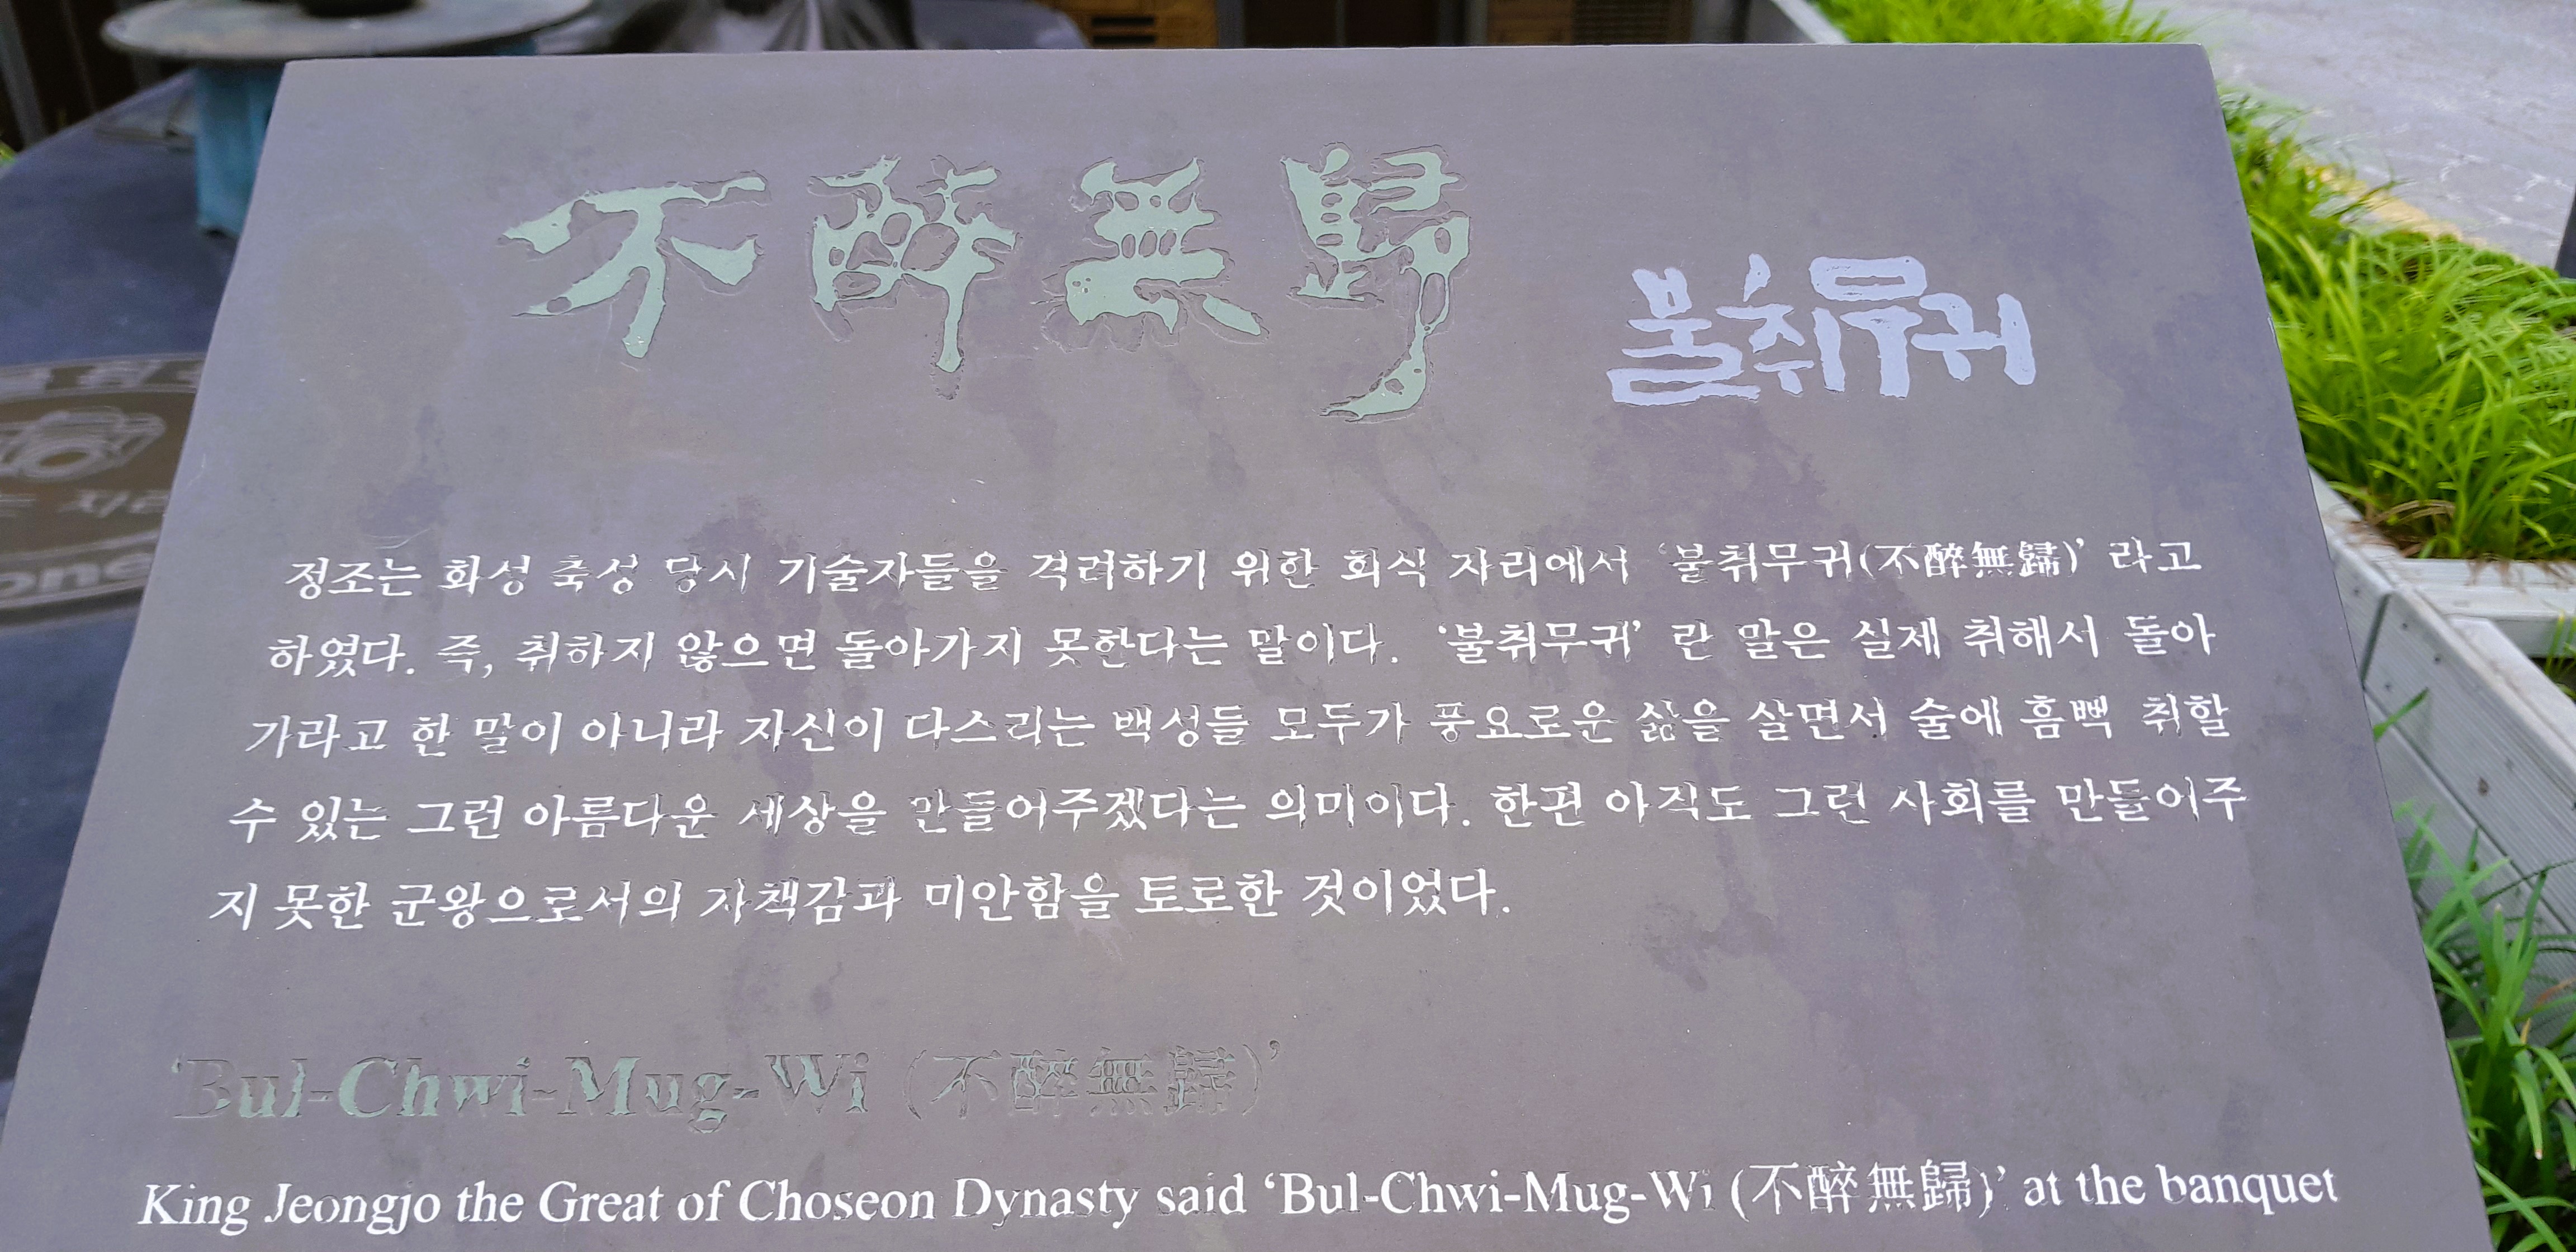 不醉無歸 불취무귀
정조는 화성 축성 당시 기술자들을 격려하기 위한 회식 자리에서 ‘불취무귀(不醉無歸)’ 라고
하였다. 즉, 취하지 않으면 돌아가지 못한다는 말이다. ‘불취무귀’ 란 말은 실제 취해서 돌아
가라고 한 말이 아니라 자신이 다스리는 백성들 모두가 풍요로운 삶을 살면서 술에 흠뻑 취할
수 있는 그런 아름다운 세상을 만들어주겠다는 의미이다. 한편 아직도 그런 사회를 만들어주
지 못한 군왕으로서의 자책감과 미안함을 토로한 것이었다.
‘Bul-Chwi-Mug-Wi (不醉無歸)’
King Jeongjo the Great of Choseon Dynasty said ‘Bul-Chwi-Mug-Wi (不醉無歸)’ at the banquet